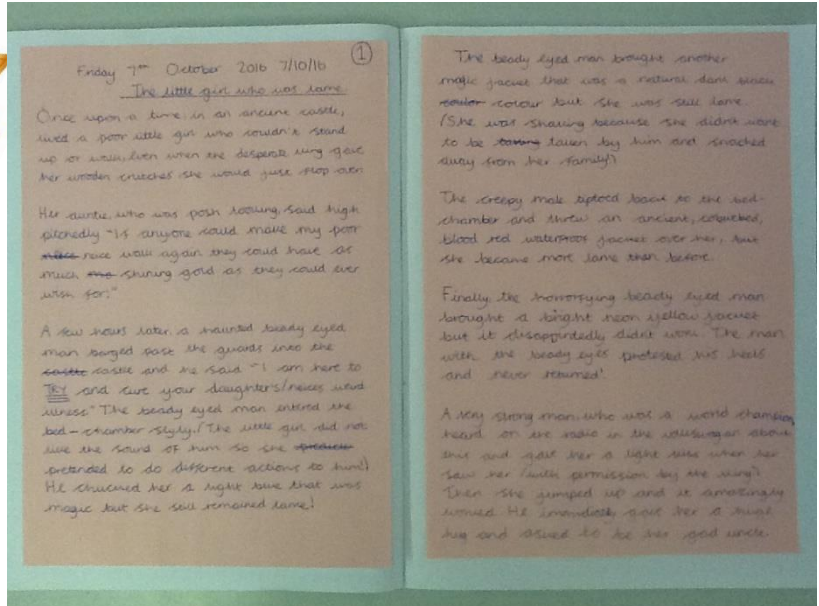 Friday 7th October 2016 7/10/16 1
The little girl who was lame
Once upon a time, in an ancient castle,
lived a poor little girl who couldn't stand
up or walk. Even when the desperate king gave
her wooden crutches she would just flop over.
Her auntie who was posh looking, said high
pitchedly "If anyone could make my poor
neice walk again they could have as
much shining gold as they could ever
wish for."
A few hours later, a haunted beady eyed
man barged past the guards into the
castle and he said "I am here to
TRY and cure your daughter's/neices weird
illness" The beady eyed man entered the
bed-chamber slyly. (The little girl did not
like the sound of him so she
pretended to do different actions to him!)
He chucked her a light blue that was
magic but she still remained lame!
The beady eyed man brought another
magic jacket that was a natural dark black
coulor colour but she was still lame.
(She was shaking because she didn't want
to be taken by him and snached
away from her family!)
The creepy male tiptoed back to the bed-
chamber and threw an ancient, cobwebed,
blood red waterproof jacket over her, but
she became more lame then before.
Finally, the horrorfying beady eyed man
brought a bright neon yellow jacket
but it disappointedly didn't work. The man
with the beady eyes protested his heels
and never returned!
A very strong man, who was a world champion,
heard on the radio in the about
this and gave her a light kiss when he
saw her (with permission by the king!)
Then she jumped up and it amazingly
worked. He gave her a huge
hug and asked to be her god uncle.